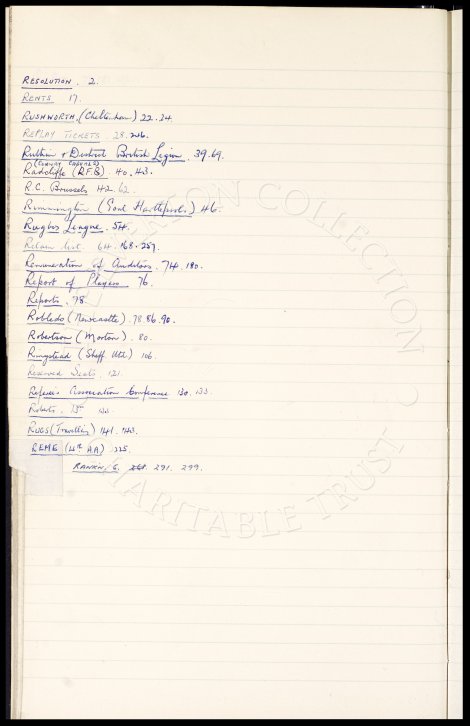 RESOLUTION . 2.
RENTS 17.
RUSHWORTH. (Cheltenham) 22.24.
REPLAY TICKETS . 28. 246.
Ruthin & District British Legion . 39.69.
(CONWAY CASUALS)
Radcliffe (R.F.G) . 40. 43.
R.C. Brussels 42. 62.
Rimmington (Hartlepools) 46.
Rugby League . 54.
Retain list. 64. 168. 257.
Remuneration of Auditors . 74. 180.
Report of Players 76.
Reports . 78.
Robledo (Newcastle) . 78 86. 90.
Robertson (Morton) . 80.
Ringstead (Sheff Utd) 106.
Reserved Seats . 121.
Referees Association Conference 130. 133.
Roberts.
RUGS (Travelling) 141. 143.
REME (4th AA) 225.
RANKIN. G. 268. 291. 299.
EVERTON COLLECTION
CHARITABLE TRUST